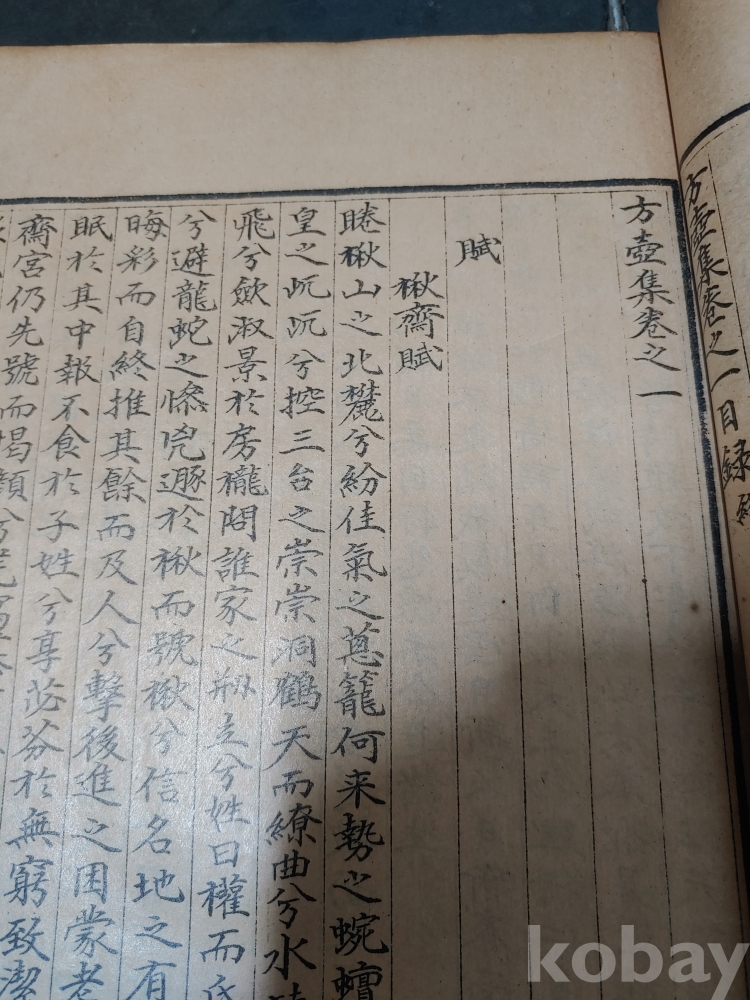 方壺集卷之一目録終
方壺集卷之一
賦
楸齋賦
睠楸山之北麓兮紛佳氣之蔥籠何来勢之蜿蟺
皇之屹沉兮控三台之崇崇洞鶴天而繚曲兮水
飛兮斂淑景於房櫳問誰家之刱立兮姓曰權而氏
兮避龍蛇之慘兇遯於楸而號楸兮信名地之有
晦彩而自終推其餘而及人兮擊後進之困蒙老
眠於其中報不食於子姓兮享苾芬於無窮致潔
齋宮仍先號而揭顏兮
kobay